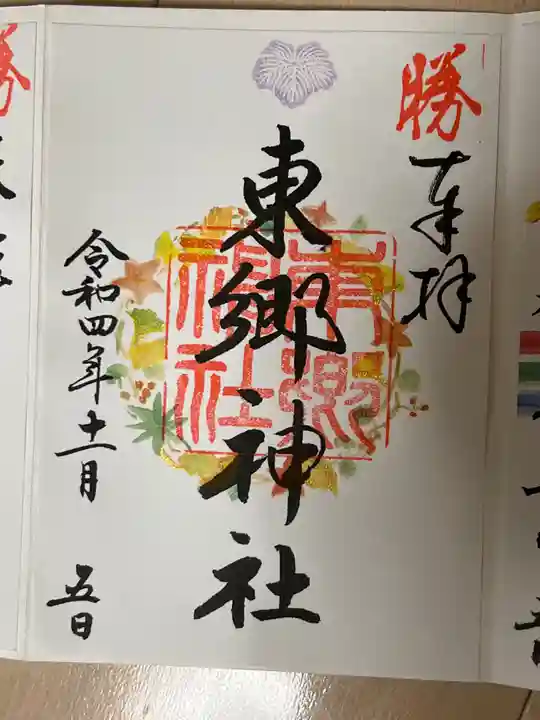 勝
奉拝
東郷神社
東郷神社
令和四年十一月
五日
勝